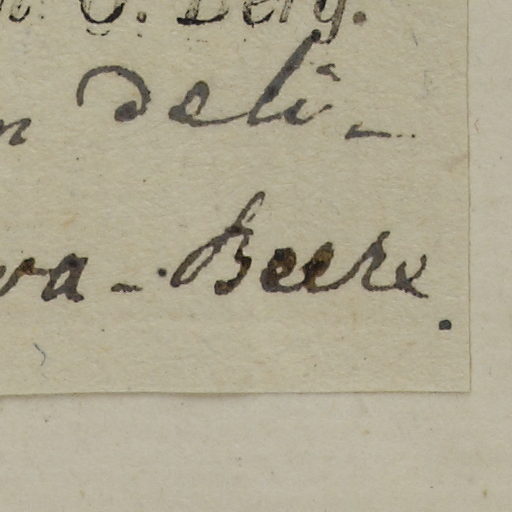 O. Berg.
deli-
va-Beere.